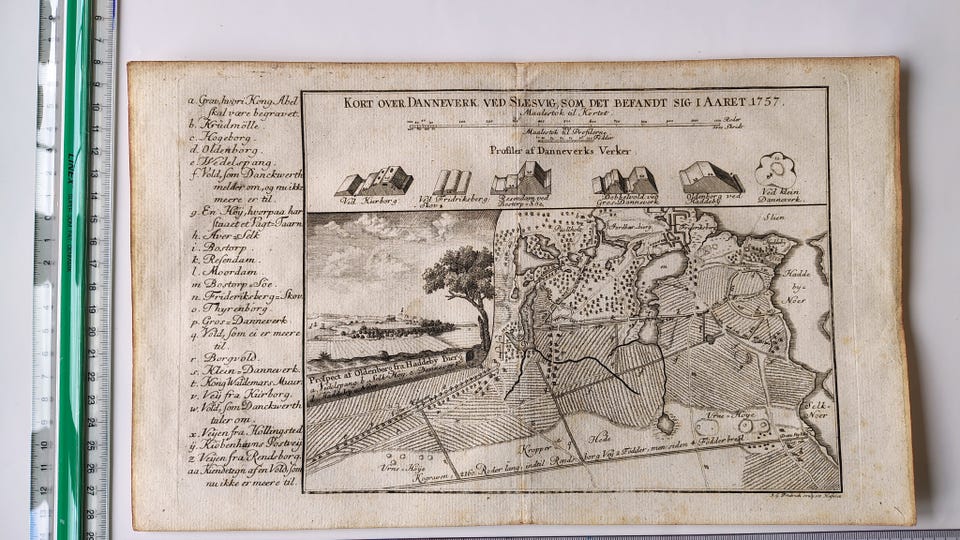 a. Grav, hvori Kong Abel
skal være begravet.
b. Krudmölle.
c. Högeborg.
d. Oldenborg.
e. Wedelspang.
f. Vold, som Danckwerth
melder om, og nu ikke
meere er til.
g. En Höÿ, hvorpaa har
staaet et Vagt=Taarn
h. Aver=Selk
i. Bostorp.
k. Resendam.
l. Moordam
m Bostorp=Söe.
n. Frideriksberg=Skov
o. Thyrenborg.
p. Gros=Danneverk
q. Vold, som ei er meere
til.
r. Borgvold.
s. Klein=Danneverk.
t. Kong Waldemars Muur.
v. Veÿ fra Kurborg.
w. Vold, som Danckwerth
taler om
x. Veÿen fra Hollingsted
ÿ. Kiöbenhavns Postveÿ
z Veÿen fra Rendsborg.
aa. Kiendetegn af en Vold, som
nu ikke er meere til.
KORT OVER DANNEVERK VED SLESVIG, SOM DET BEFANDT SIG I AARET 1757.
Maalestok til Kortet.
Roder
Maalestok til Profilerne
Födder
Profiler af Danneverks Verker
Ved Kurborg.
Ved Fridriksberg
Skov
Resendam ved
Bostorp=Söe.
Dobbeltvold ved
Gros=Danneverk
Oldenborg ved
Haddebÿ
Ved klein
Danneverk.
Slien
Hadde
bÿe
Noer
Selk
Noer
Prospect af Oldenborg fra Haddebÿ Bierg
Urne=Höye
Urne=Höye
Hede
Kropper
Kograven 2160 Roder lang, indtil Rendsborg Veÿ 2 Födder, men siden 4 Födder breed